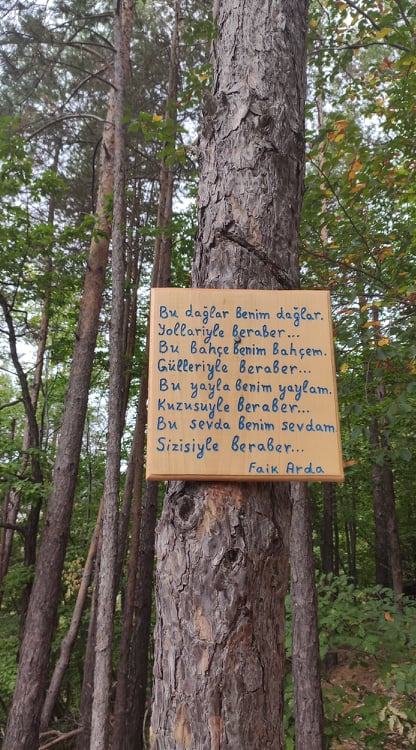 Bu dağlar benim dağlar.
Yollariyle beraber...
Bu bahçe benim bahçem.
Gülleriyle beraber...
Bu yayla benim yaylam.
Kuzusuyle beraber...
Bu sevda benim sevdam
Sizisiyle beraber...
Faik Arda